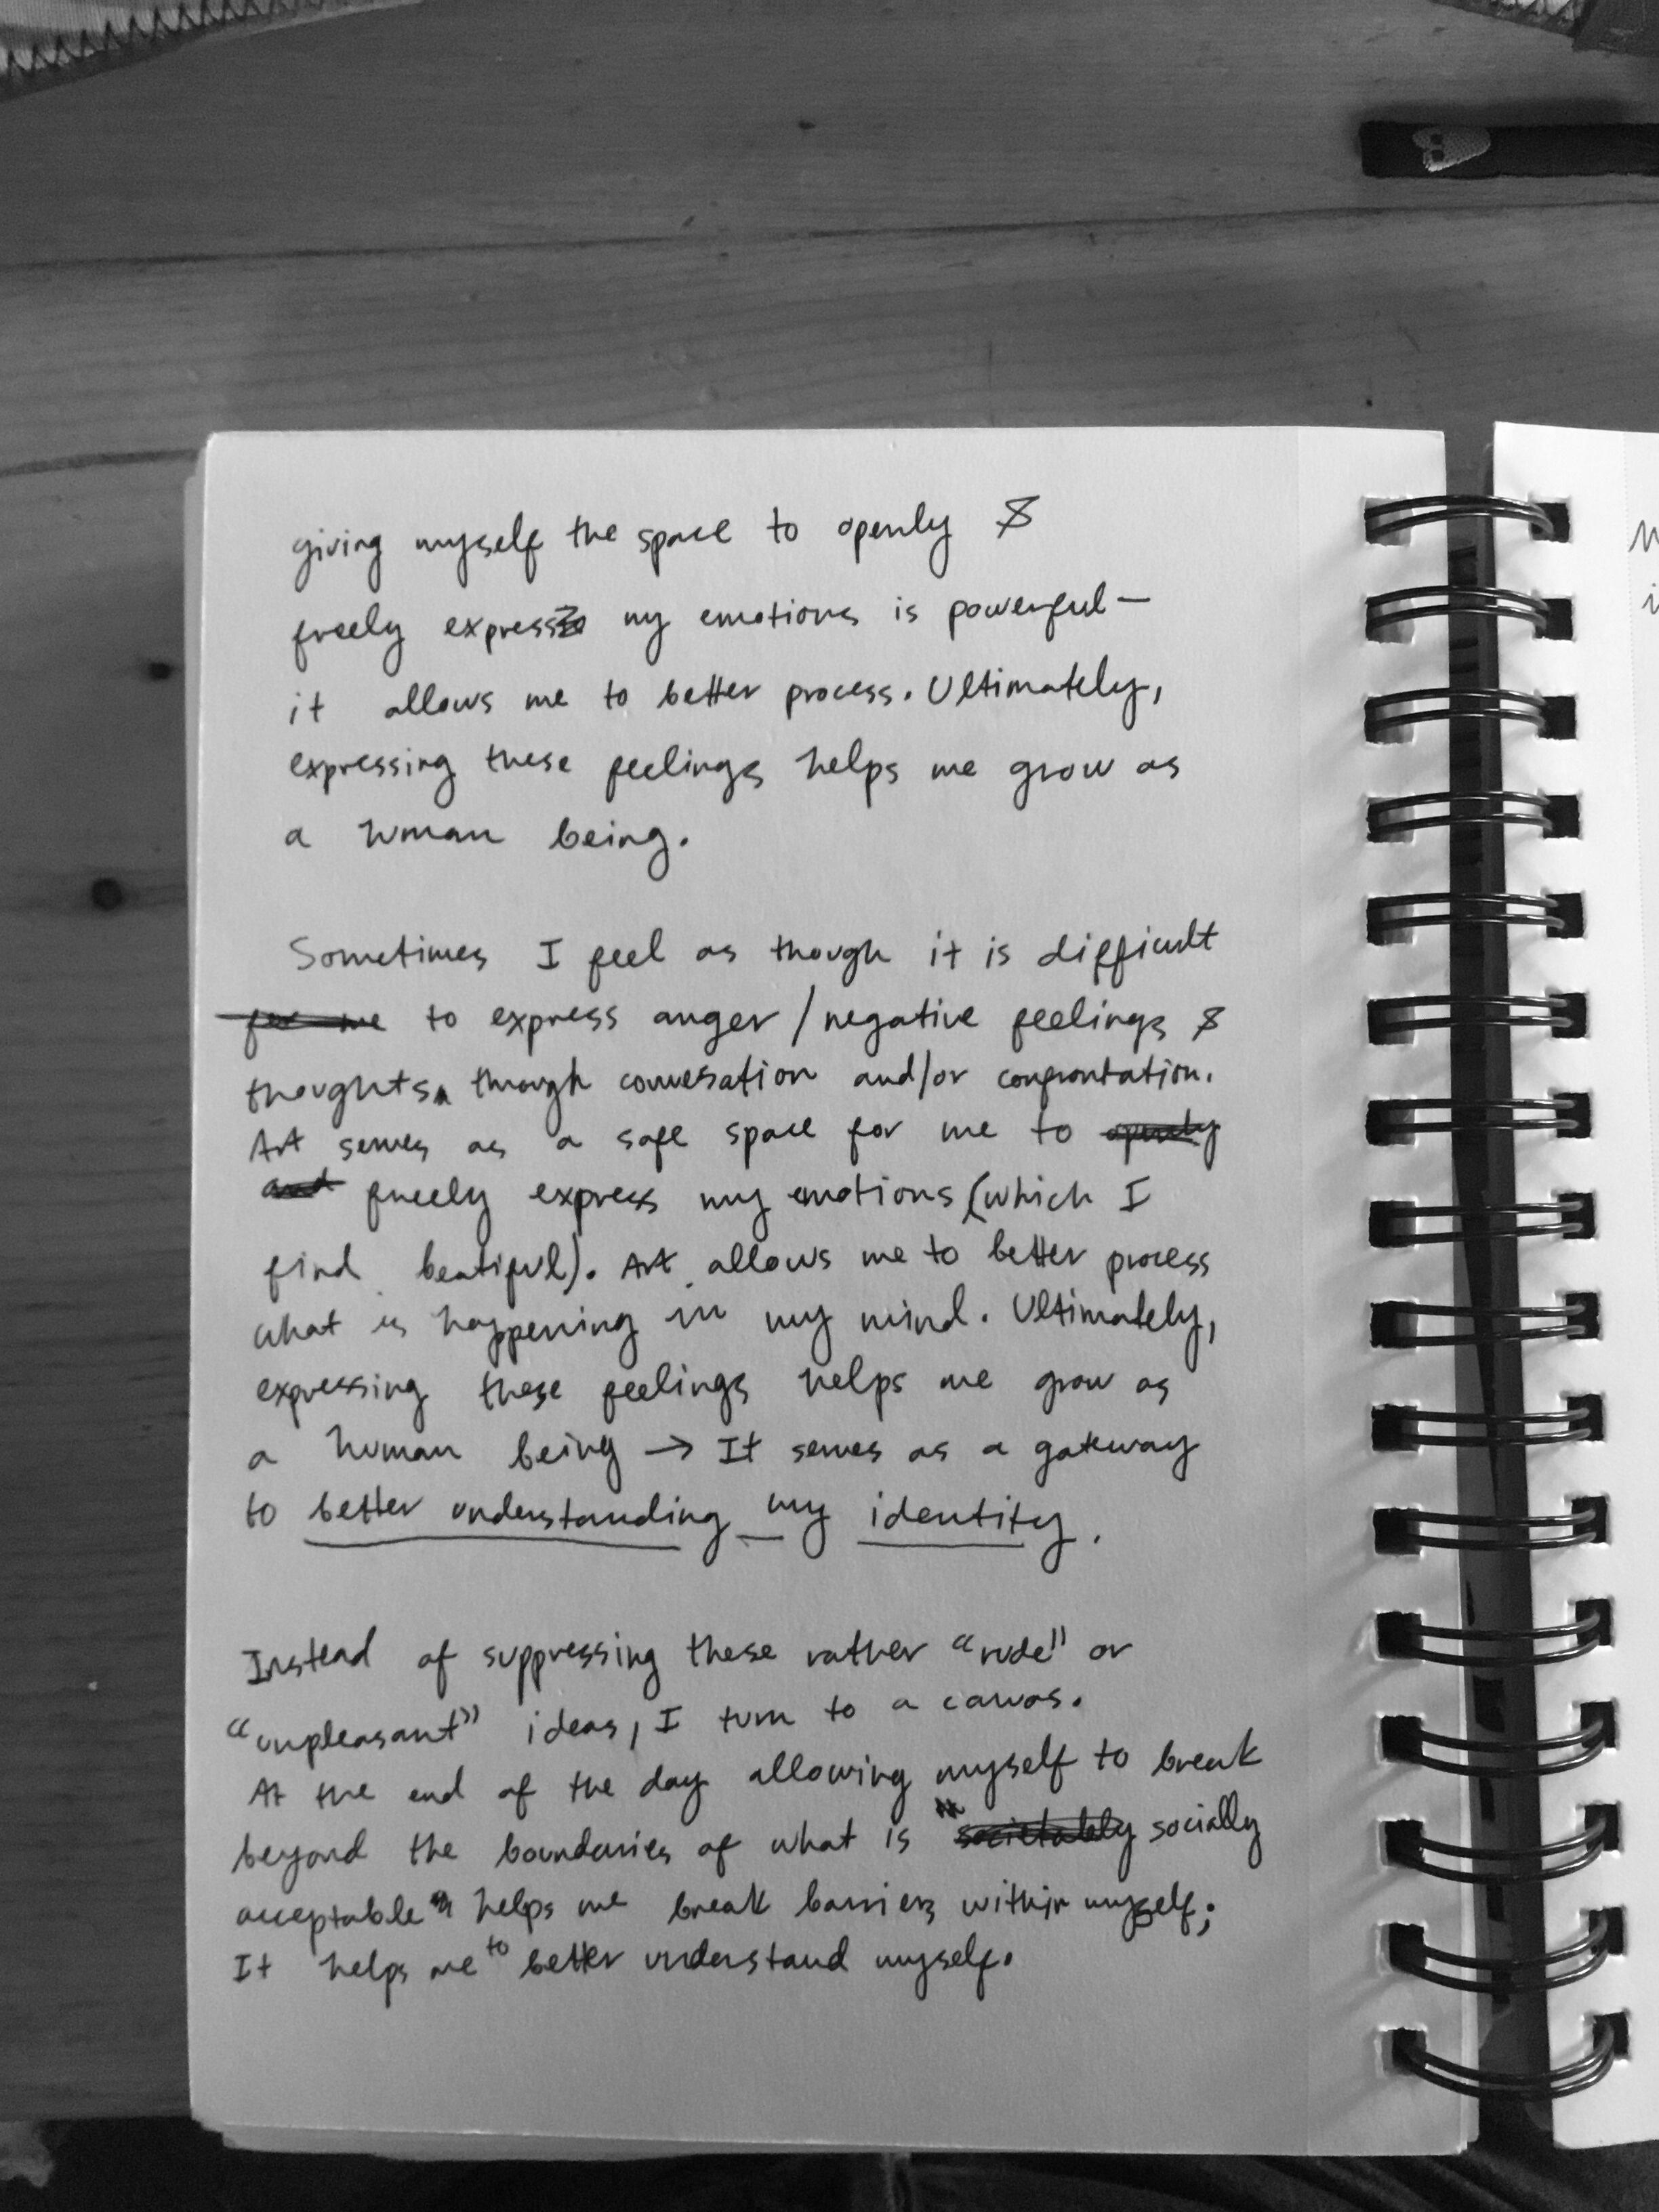 giving myself the space to openly &
freely express my emotions is powerful—
it allows me to better process. Ultimately,
expressing these feelings helps me grow as
a human being.
Sometimes I feel as though it is difficult
for me to express anger / negative feelings &
thoughts through conversation and/or confrontation.
Art serves as a safe space for me to openly
and freely express my emotions (which I
find beatiful). Art allows me to better process
what is happening in my mind. Ultimately,
expressing these feelings helps me grow as
a human being → It serves as a gateway
to better understanding my identity.
Instead of suppressing these rather "rude" or
"unpleasant" ideas, I turn to a canvas.
At the end of the day allowing myself to break
beyond the boundaries of what is "societably socially
acceptable" helps me break barriers within myself;
It helps me to better understand myself.